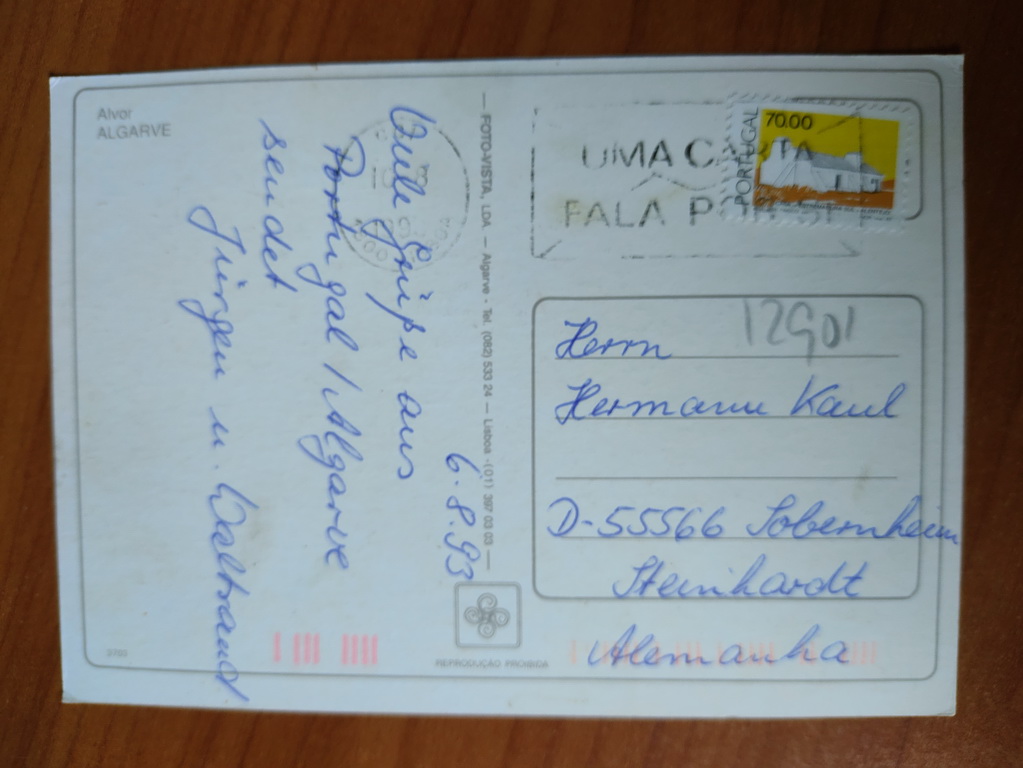 Alvor
ALGARVE
6.8.93
Viele Grüße aus
Portugal / Algarve
sendet
Jürgen u. Waltraud
FOTO-VISTA, LDA — Algarve - Tel. (082) 533 24 — Lisboa - (01) 397 03 03 —
UMA CARTA
FALA POR SI
PORTUGAL
70.00
12901
Herrn
Hermann Kaul
D-55566 Sobernheim
Steinhardt
Alemanha
REPRODUÇÃO PROIBIDA